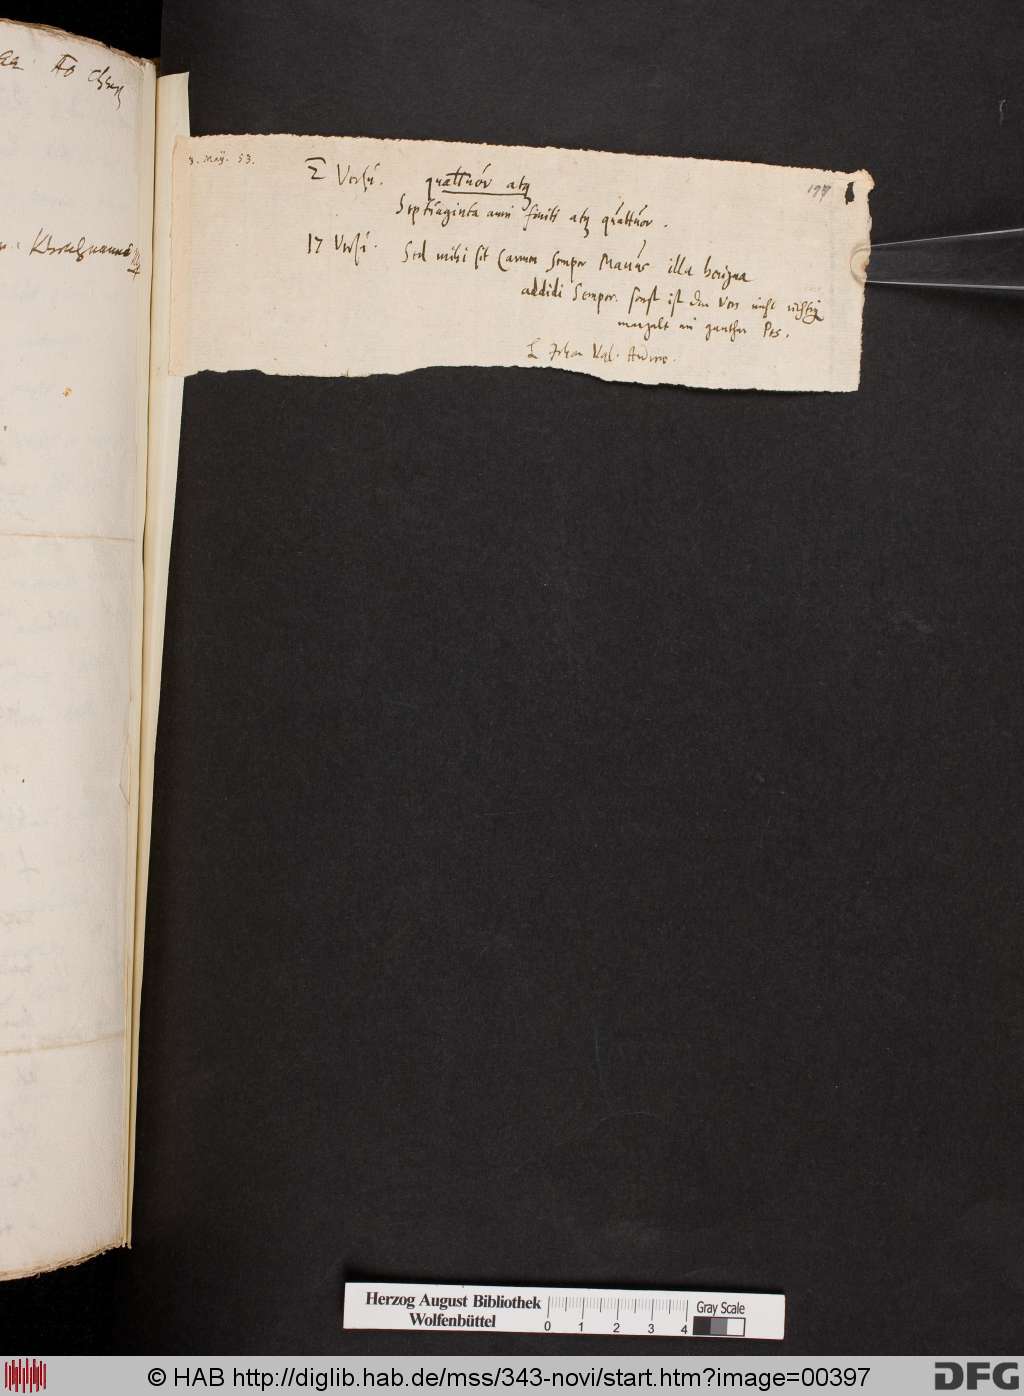 3. Maÿ. 53.
197
Versù. quattuór atq
Septùaginta anni finiti atq quàttùor.
17 Versù. Sed mihi sit Carmen semper Manùs illa benigna
addidi Semper. sonst ist der Vers nicht richtig
mangelt ein gantzer Pes.
Johan Val. Andreæ.
Herzog August Bibliothek
Wolfenbüttel
0 1 2 3 4
Gray Scale
© HAB http://diglib.hab.de/mss/343-novi/start.htm?image=00397
DFG